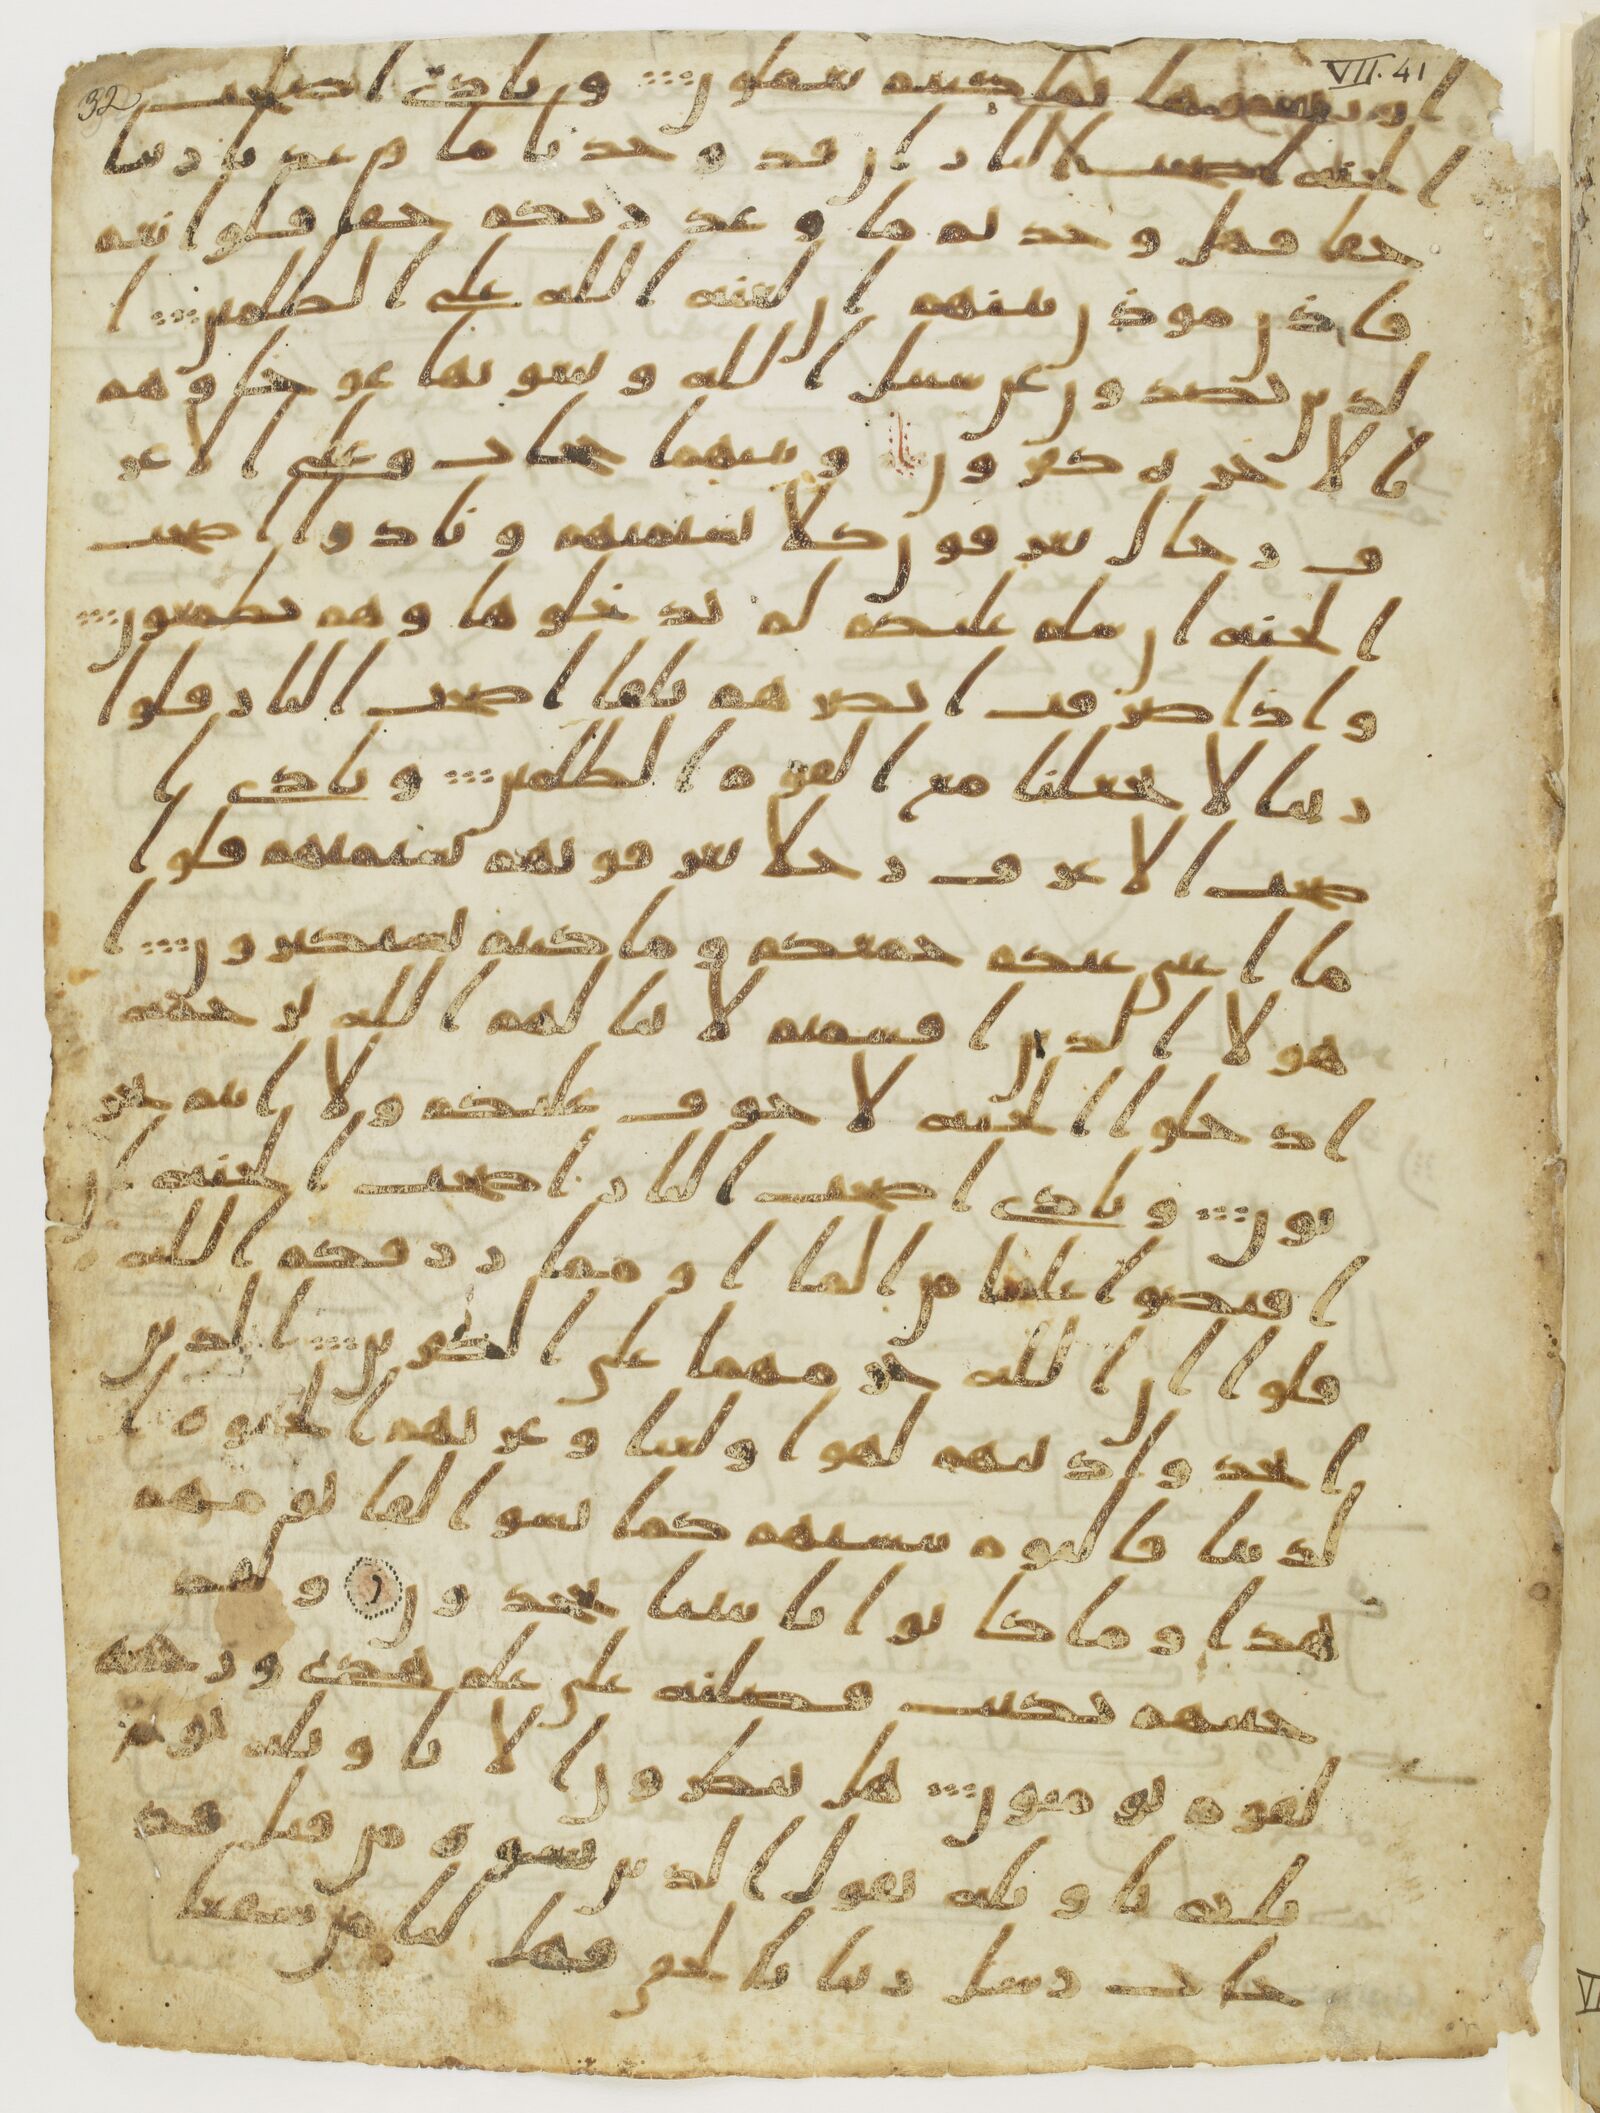 VII. 41
32
اورثتموها بما كنتم تعملون ونادى اصحب
الجنه اصحب النار ان قد وجدنا ما وعدنا ربنا
حقا فهل وجدتم ما وعد ربكم حقا قلوا نعم
فاذن موذن بينهم ان لعنه الله على الظلمين ا
لذين يصدون عن سبيل الله ويبغونها عوجا وهم
بالاخره كفرون وبينهما حجاب وعلى الاعر
ف رجال يعرفون كلا بسيميهم ونادوا اصحب
الجنه ان سلم عليكم لم يدخلوها وهم يطمعون
واذا صرفت ابصرهم تلقا اصحب النار قلوا
ربنا لا تجعلنا مع القوم الظلمين ونادى ا
صحب الاعرف رجلا يعرفونهم بسيميهم قلوا
ما اغنى عنكم جمعكم وما كنتم تستكبرون ا
هولا الذين اقسمتم لا ينالهم الله برحمه
ادخلوا الجنه لا خوف عليكم ولا انتم تحز
نون ونادى اصحب النار اصحب الجنه ان
افيضوا علينا من الما او مما رزقكم الله
قلوا ان الله حرمهما على الكفرين الذين
اتخذوا دينهم لهوا ولعبا وغرتهم الحيوه ا
لدنيا فاليوم ننسيهم كما نسوا لقا يومهم
هذا وما كانوا بايتنا يجحدون ولقد
جينهم بكتب فصلنه على علم هدى ورحمه
لقوم يومنون هل ينظرون الا تاويله يوم
ياتى تاويله يقول الذين نسوه من قبل قد
جات رسل ربنا بالحق فهل لنا من شفعا